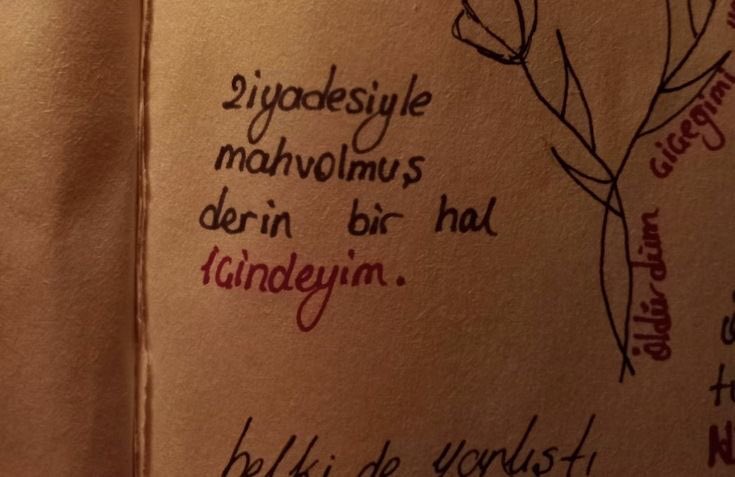 ziyadesiyle
mahvolmuş
derin bir hal
içindeyim.
öldürdüm çiçeğimi
belki de yanlıştı